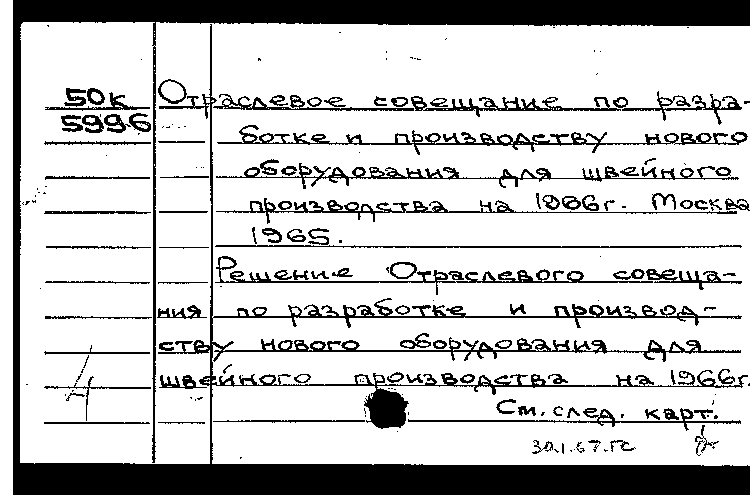 50к Отраслевое совещание по разра-
5996 ботке и производству нового
оборудования для швейного
производства на 1966г. Москва
1965.
Решение Отраслевого совеща-
ния по разработке и производ-
ству нового оборудования для
швейного производства на 1966г.
4 См. след. карт.
30.1.67.ГС